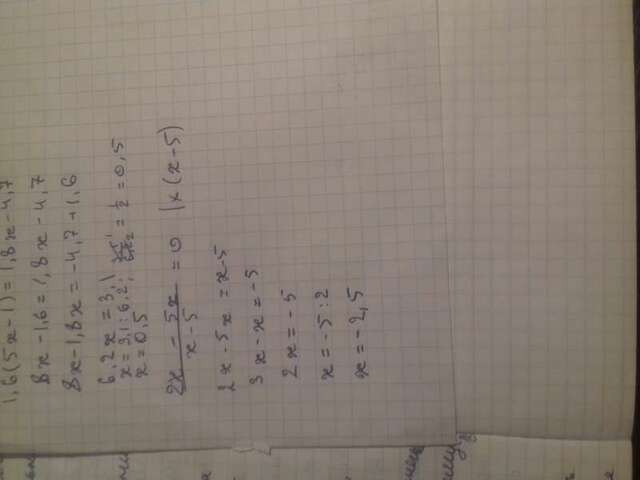 1,6(5x-1)=1,8x-4,7
8x-1,6=1,8x-4,7
8x-1,8x=-4,7+1,6
6,2x=3,1
x=3,1:6,2; = 1/2 = 0,5
x=0,5
2x - 5x / x-5 = 0 |x (x-5)
2x-5x=x-5
3x-x=-5
2x=-5
x=-5:2
x=-2,5